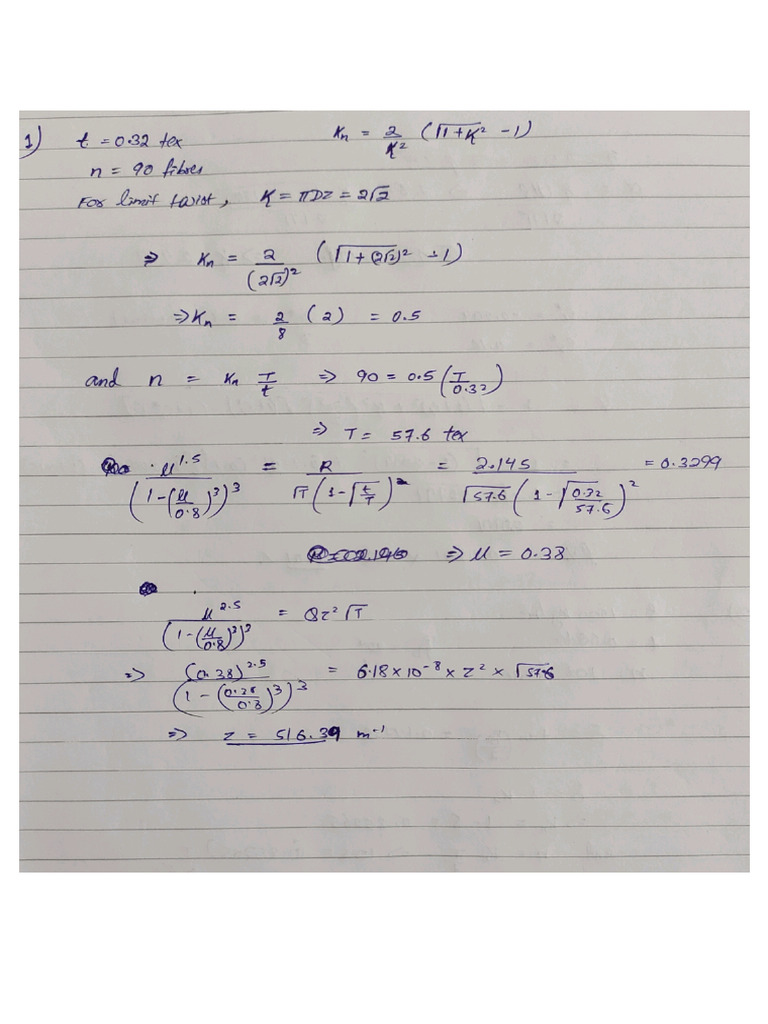 1) t = 0.32 tex Kn = 2/K² (√(1+K²) - 1)
n = 90 fibres
For limit twist, K = πDZ = 2√2
⇒ Kn = 2/(2√2)² (√(1+(2√2)²) - 1)
⇒ Kn = 2/8 (2) = 0.5
and n = Kn T/t ⇒ 90 = 0.5 (T/0.32)
⇒ T = 57.6 tex
μ^1.5/(1-(μ/0.8)³)³ = R/(√T(1-√(t/T))²) = 2.145/(√57.6(1-√(0.32/57.6))²) = 0.3299
⇒ μ = 0.38
μ^2.5/(1-(μ/0.8)³)³ = Qz²√T
⇒ (0.38)^2.5/(1-(0.38/0.8)³)³ = 6.18×10⁻⁸ × z² × √57.6
⇒ z = 516.39 m⁻¹